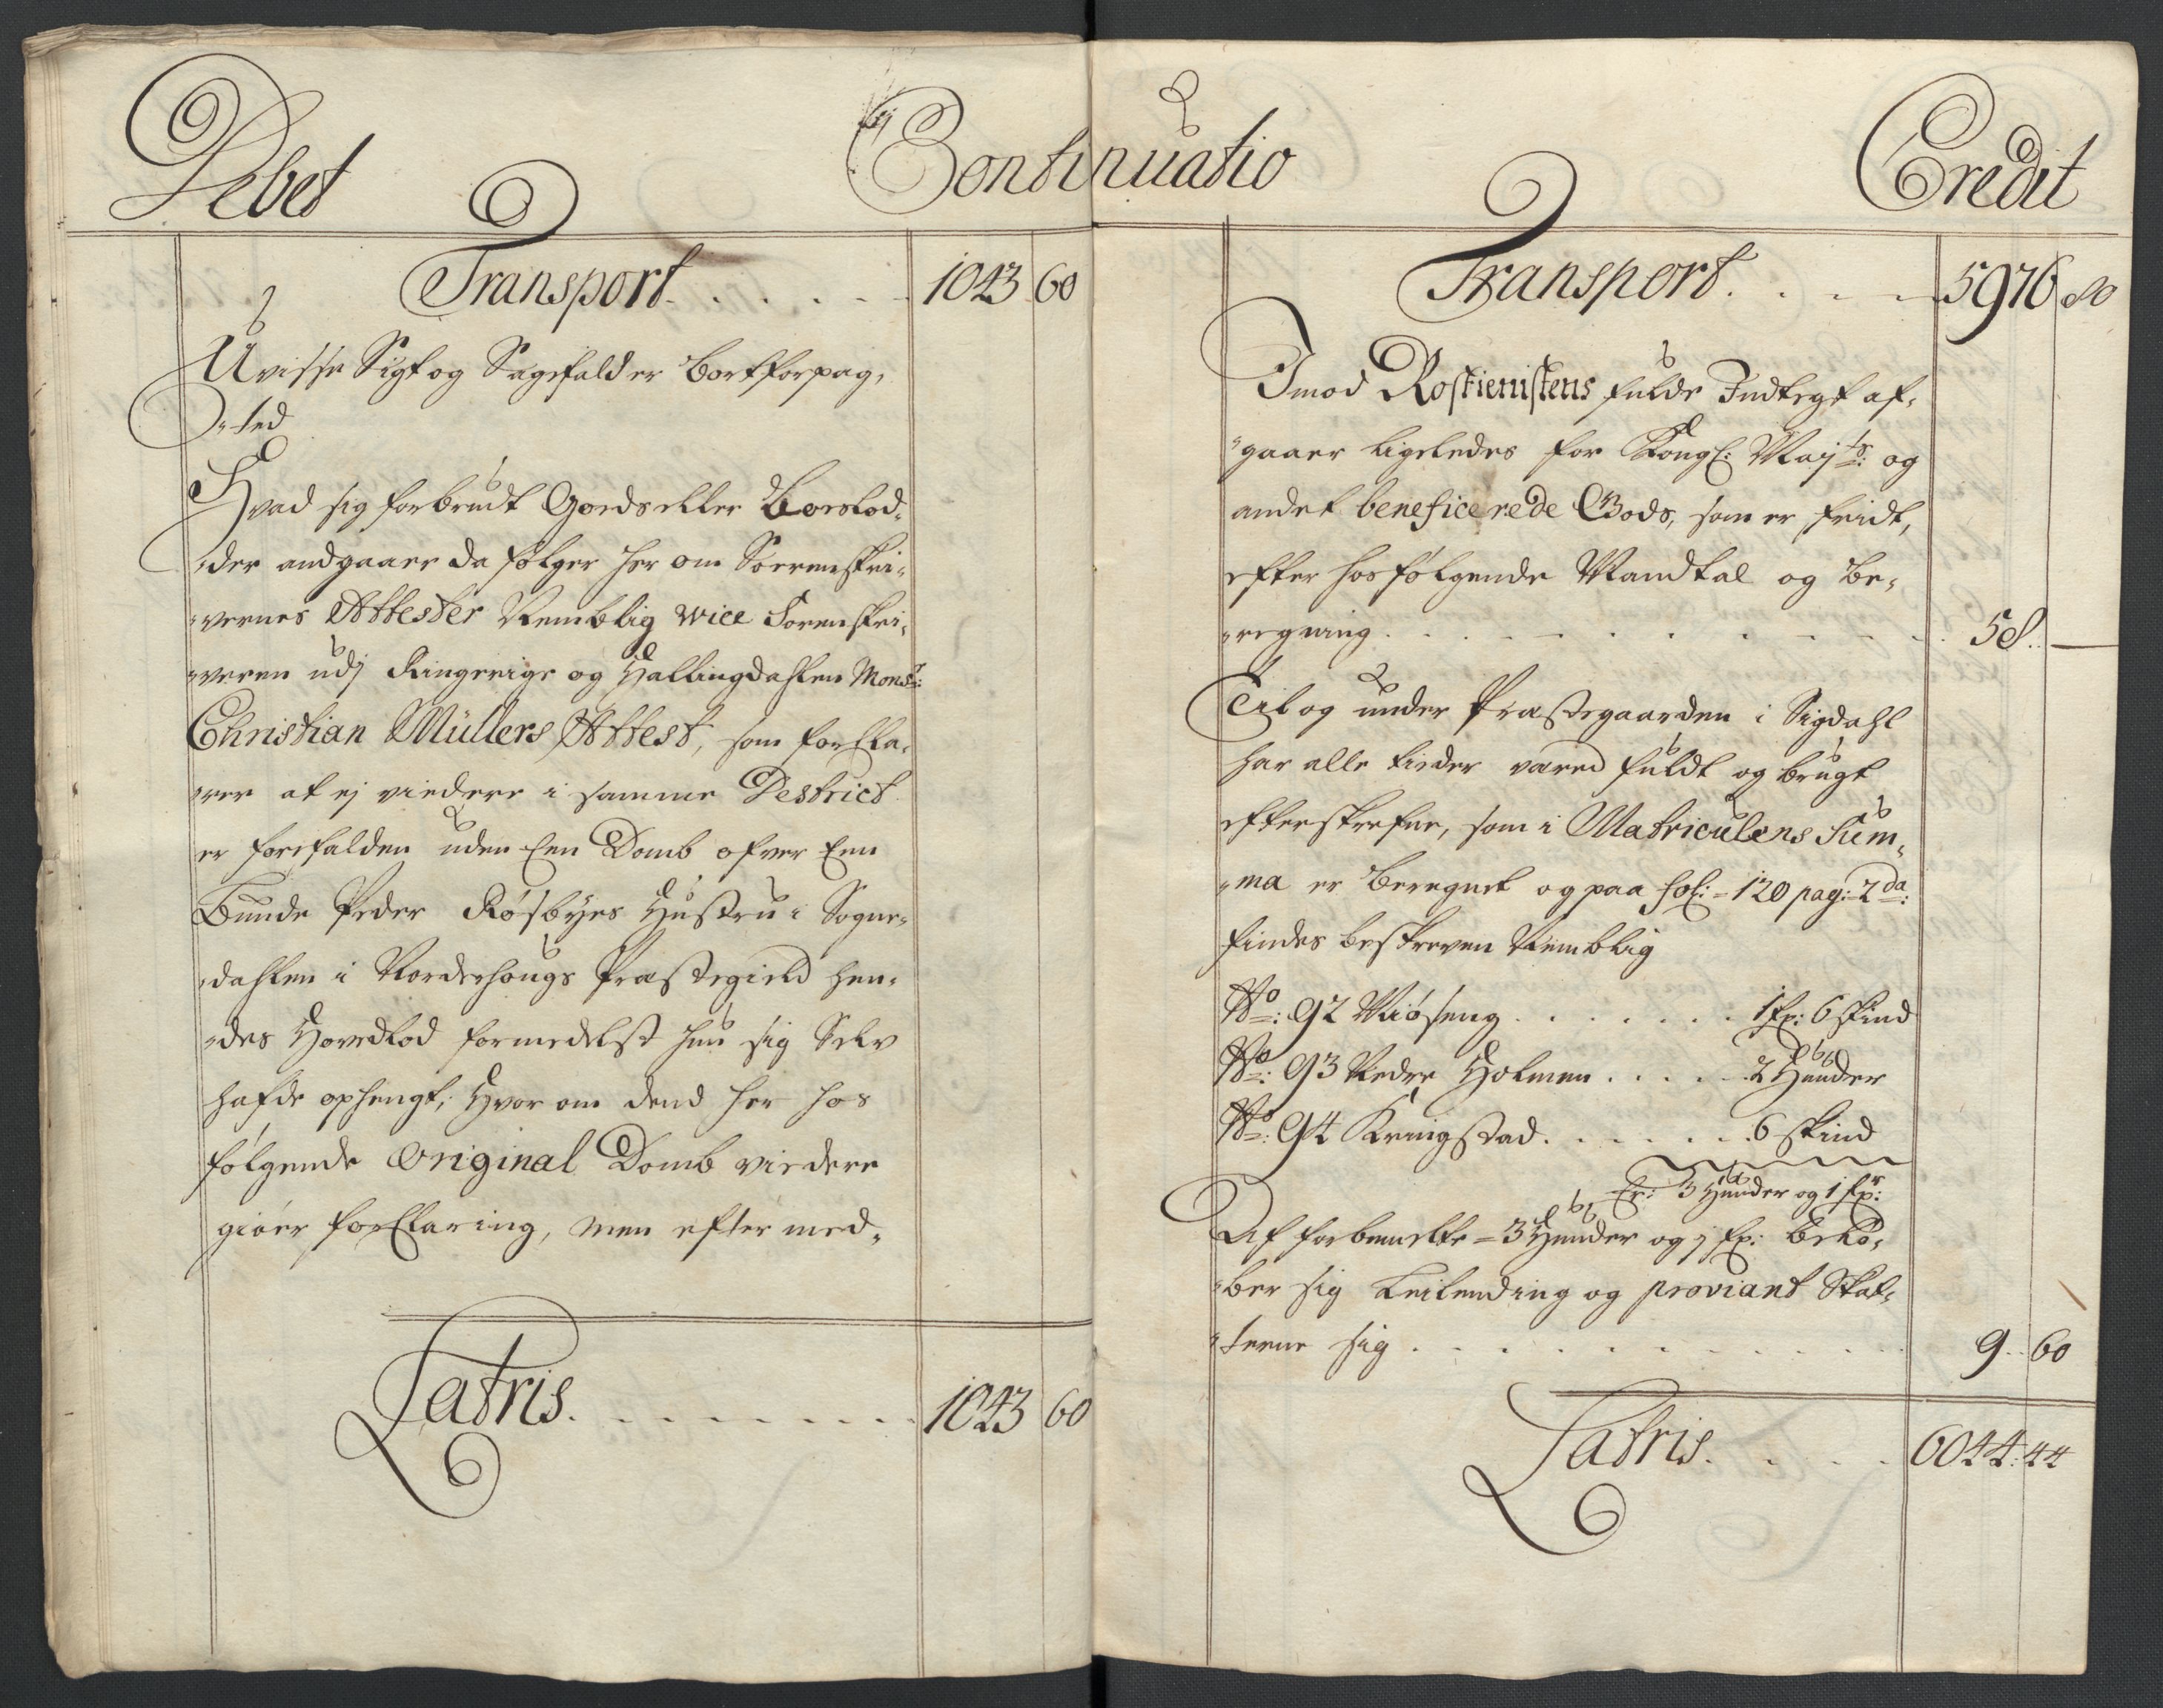 Debet
Continuatio
Transport . . . . . . 1043 60
Uvisse Sigt og Sagefald er Bortforpag,
,,ted
Hvad sig forbrudt Goeds eller Boeslod,
,,der andgaaer da følger her om Soerenskri,
,,vernes Attester Nemblig vice Sorenskri,
,,veren udj Ringerige og Hallingdahlen Monsr:
Christian Müllers Attest, som forkla,
,,rer at ej viedere i samme Destrict
er forefalden uden Een Domb ofver Een
Bunde Peder Røsbyes Hustru i Sogne,
,,dahlen i Norderhougs Præstegield hen,
,,des Hovedlod formedelst hun sig Selv
hafde ophengt, Hvor om dend her hos
følgende Original Domb viedere
giøer forklaring, men efter med,,
Latris . . . . . . . . 1043 60
Credit
Transport . . . . 5976 80
Imod Rostienistens fulde Indtegt af,
,,gaaer ligeledes for Kongl: Mayts: og
andet beneficerede Gods, som er fridt,
efter hosfølgende Mandtal og Be,
,,regning . . . . . . . . . 58. —
Til og under Præstegaarden i Sigdahl
har alle tieder vared fuldt og brugt
efterskrefne, som i Matriculens Sum,
,,ma er beregnet og paa fol: 120 pag: 2da:
findes beskreven Nemblig
No: 92 Miøseng . . . . . . 1 fr: 6 skind
No: 93 Nedre Holmen . . . . . 2 Hunder
No: 94 Kringstad . . . . . . 6 skind
Er: 3 Hunder og 1 fr:
Af forbemelte 3 Hunder og j fr: belø,
,,ber sig Leilending og proviant Skat,
,,terne sig . . . . . . . . . 9.. 60
Latris . . . . 6044: 44